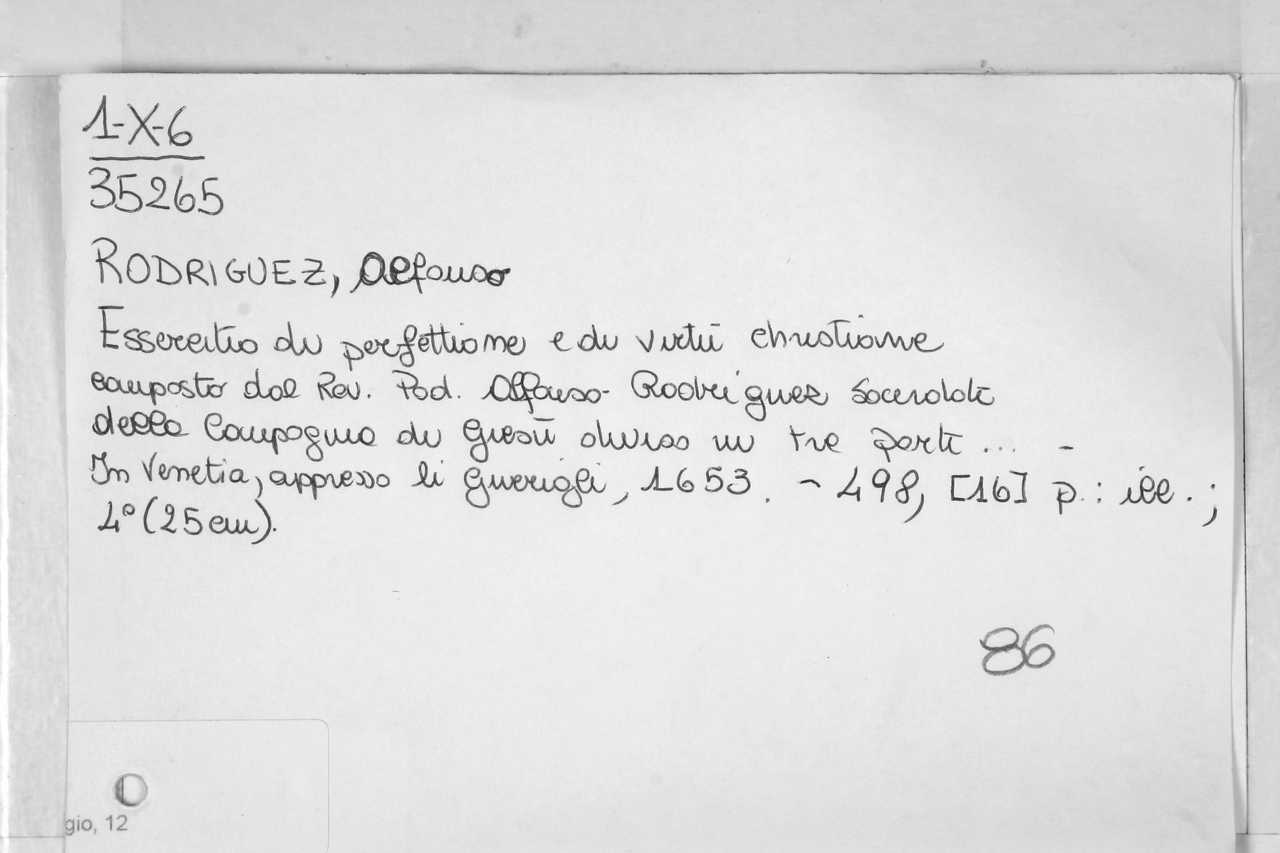 1-X-6
35265
RODRIGUEZ, Alfonso
Essercitio di perfettione e di virtù christiane
composto dal Rev. Pad. Alfonso Rodriguez Sacerdote
della Compagnia di Giesù diviso in tre parti ... -
In Venetia, appresso li Guerigli, 1653. - 498, [16] p. : ill. ;
4° (25 cm).
86
gio, 12